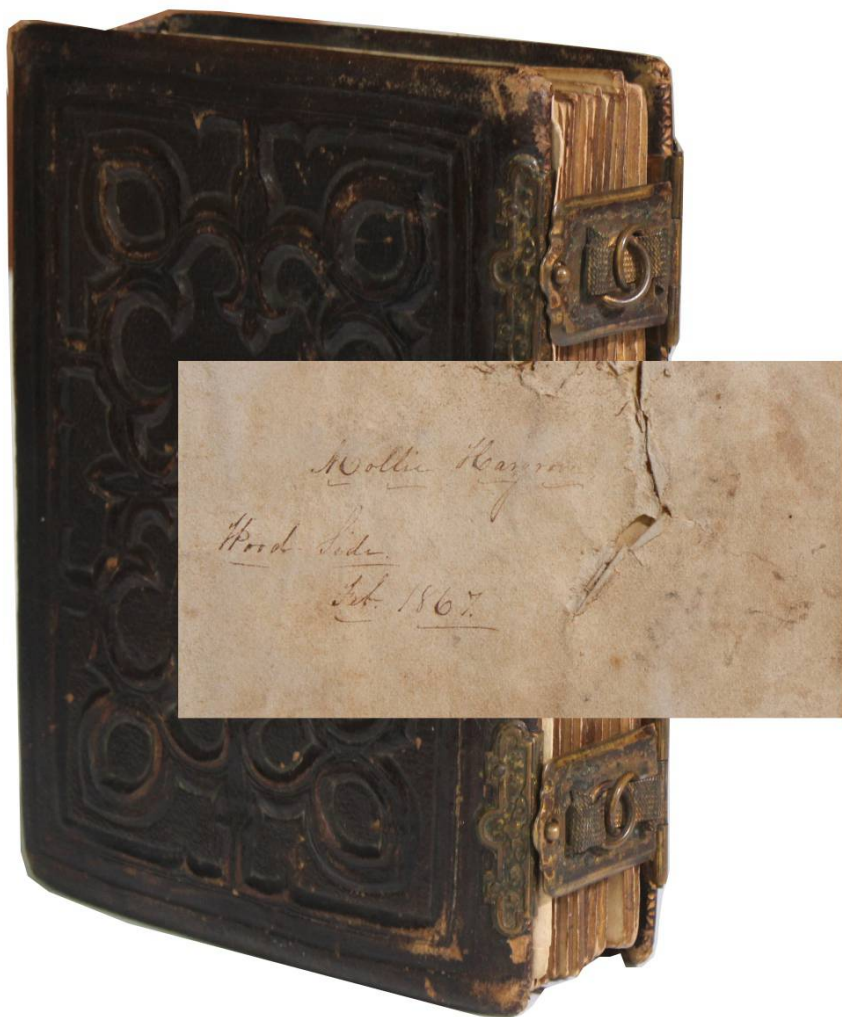 Mollie Hargrove
Wood Side.
Feb. 1867.